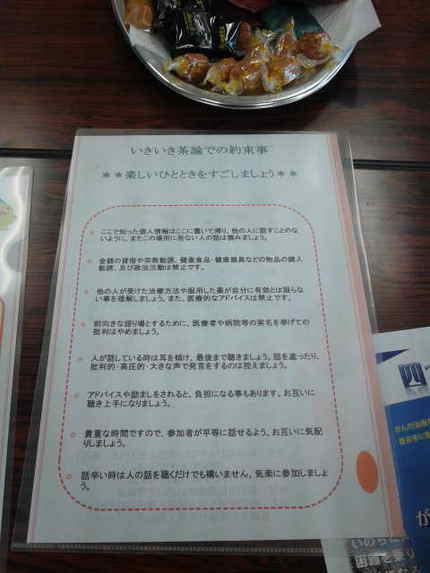 いきいき茶論での約束事
**楽しいひとときをすごしましょう**
ここで知った個人情報はここに置いて帰り、他の人に話すことのな
いように、またこの場所に居ない人の話は慎みましょう。
金銭の貸借や宗教勧誘、健康食品・健康器具などの物品の購入
勧誘、及び政治活動は禁止です。
他の人が受けた治療方法や服用した薬が自分に有効とは限らな
い事を理解しましょう。また、医療的なアドバイスは禁止です。
前向きな語り場とするために、医療者や病院等の実名を挙げての
批判はやめましょう。
人が話している時は耳を傾け、最後まで聴きましょう。話を遮ったり、
批判的・高圧的・大きな声で発言をするのは控えましょう。
アドバイスや励ましをされると、負担になる事もあります。お互いに
聴き上手になりましょう。
貴重な時間ですので、参加者が平等に話せるよう、お互いに気配
りしましょう。
話辛い時は人の話を聴くだけでも構いません。気楽に参加しましょ
う。
四
が